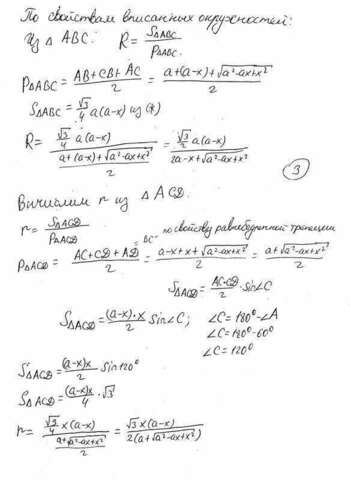 По свойствам вписанных окружностей:
Из △ABC. R = S△ABC / P△ABC.
P△ABC = (AB+CB+AC)/2 = (a+(a-x)+√(a²-ax+x²))/2
S△ABC = √3/4 a(a-x) из (*)
R = (√3/4 a(a-x)) / ((a+(a-x)+√(a²-ax+x²))/2) = (√3/2 a(a-x)) / (2a-x+√(a²-ax+x²))
3
Вычислим r из △ACD.
r = S△ACD / P△ACD
"BC" по свойству равнобедренной трапеции
P△ACD = (AC+CD+AD)/2 = (a-x+x+√(a²-ax+x²))/2 = (a+√(a²-ax+x²))/2
S△ACD = (AC·CD)/2 · sin∠C
S△ACD = ((a-x)·x)/2 sin∠C; ∠C = 180°-∠A
∠C = 180°-60°
∠C = 120°
S△ACD = ((a-x)x)/2 sin120°
S△ACD = ((a-x)x)/4 · √3
r = (√3/4 x(a-x)) / ((a+√(a²-ax+x²))/2) = (√3 x(a-x)) / (2(a+√(a²-ax+x²)))